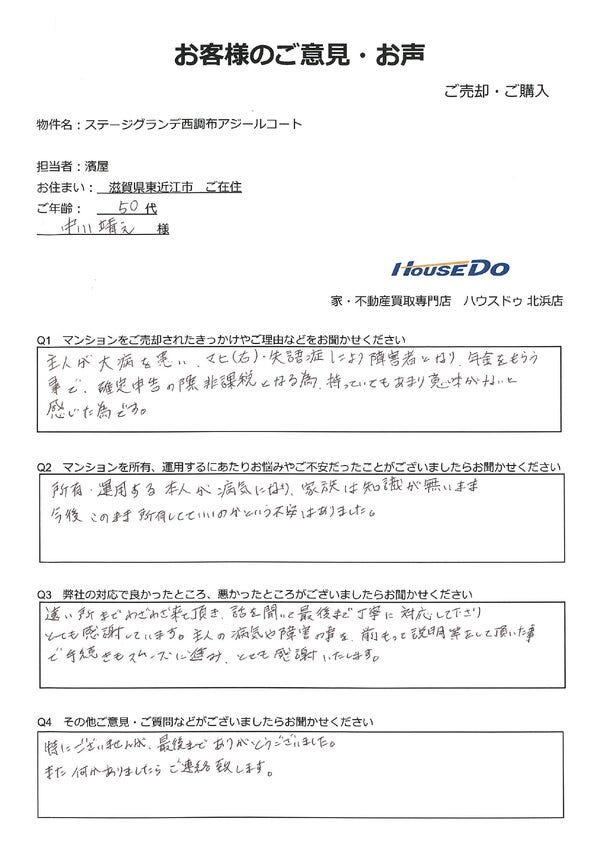 お客様のご意見・お声
ご売却・ご購入
物件名：ステージグランデ西調布アジールコート
担当者：濱屋
お住まい： 滋賀県東近江市 ご在住
ご年齢： 50 代
中川 靖之 様
HOUSEDO
家・不動産買取専門店 ハウスドゥ 北浜店
Q1 マンションをご売却されたきっかけやご理由などをお聞かせください
主人が大病を患い、マヒ(右)・失語症により障害者となり、年金をもらう
事で、確定申告の際非課税となる為、持っていてもあまり意味がないと
感じた為です。
Q2 マンションを所有、運用するにあたりお悩みやご不安だったことがございましたらお聞かせください
所有・運用する本人が病気になり、家族は知識が無いまま
今後このまま所有してていいのかという不安はありました。
Q3 弊社の対応で良かったところ、悪かったところがございましたらお聞かせください
遠い所までわざわざ来て頂き、話を聞いて最後まで丁寧に対応して下さり
とても感謝しています。主人の病気や障害の事を、前もって説明等をして頂いた事
で手続きもスムーズに進み、とても感謝いたします。
Q4 その他ご意見・ご質問などがございましたらお聞かせください
特にございませんが、最後までありがとうございました。
また何かありましたらご連絡致します。